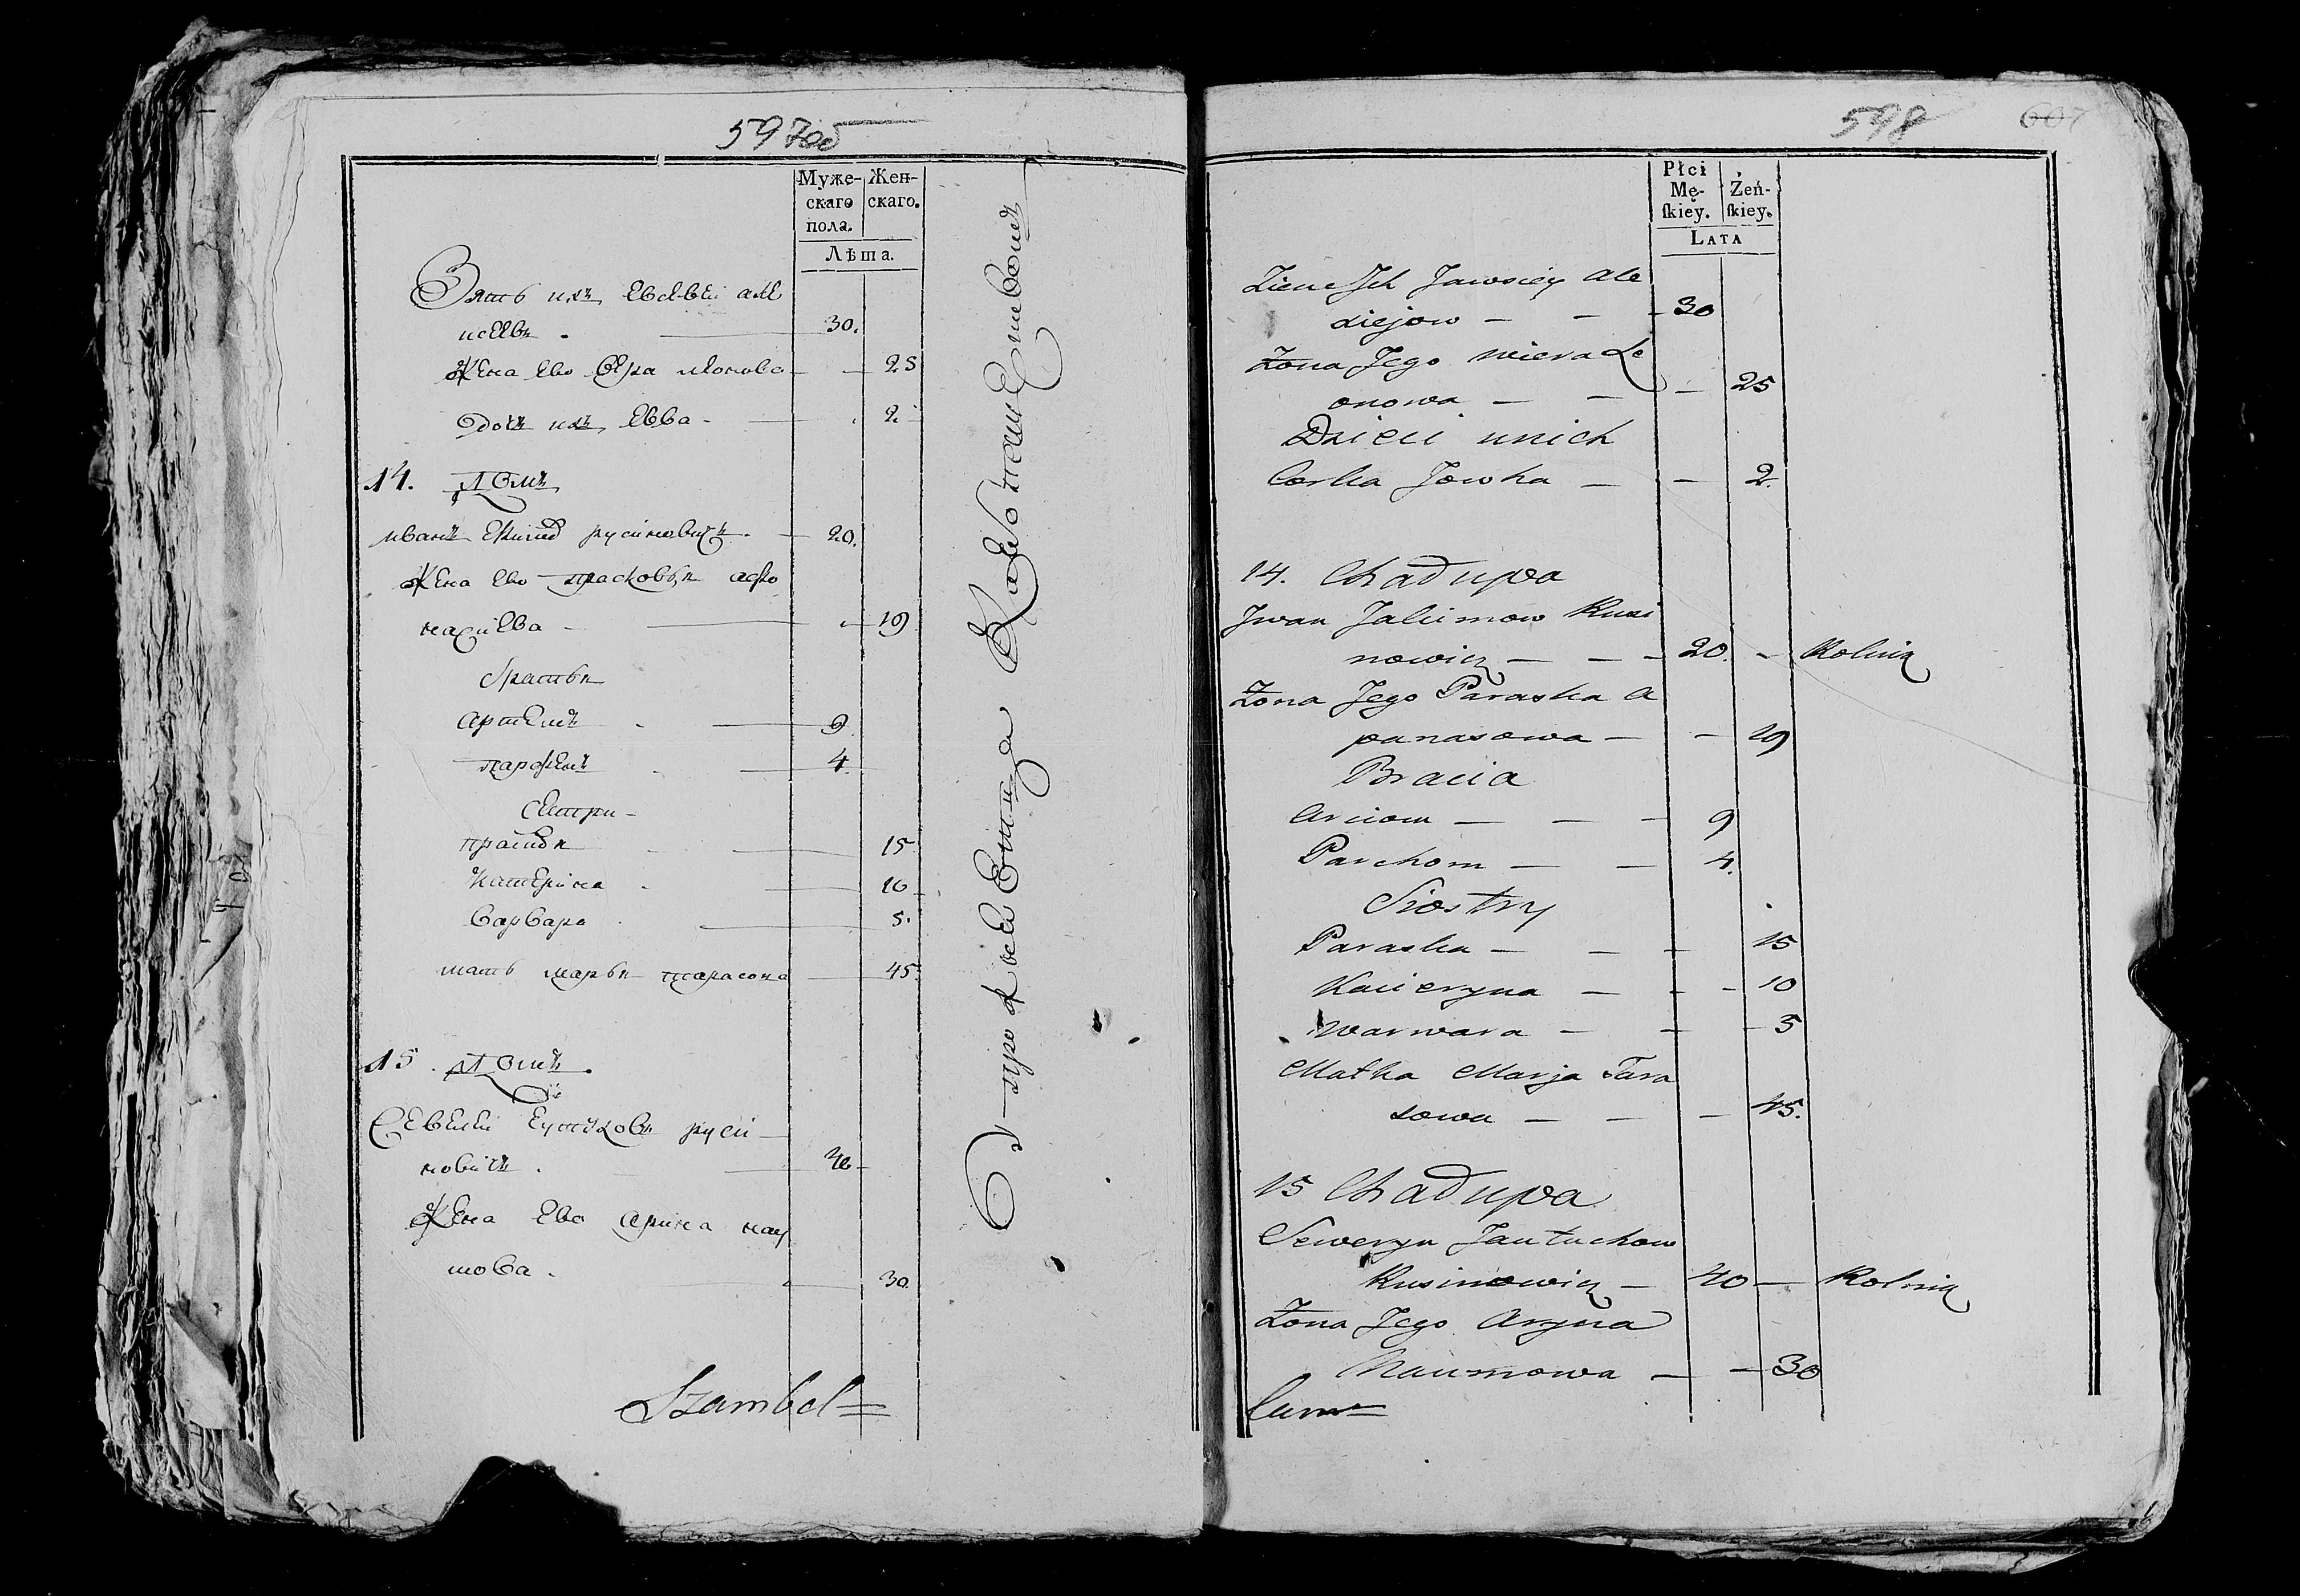 597об
Муже- Жен-
скаго скаго.
пола.
Лѣта.
Зять ихъ Евсевей але
исеевъ . 30.
Жена Ево Вера леонова 25
Дочь ихъ Евва - 2
14. Домъ
иванъ Екимов русиновичъ. 20.
Жена Ево прасковья афо
насиева - 19
братья
артемъ 9
парфенъ 4
сестри -
прасковя 15
Катерина 10
варвара 5.
мать марья тарасова 45
15. Домъ.
Севелей Евтухова руси
новичъ . 40
Жена Ево арина нау
мова . 30
Szambel=
598 607
Płci
Mę- Żeń-
ſkiey. ſkiey.
LATA
Zienc Jch Jawsiey Ale
xiejow — — 30
Żona Jego Wiera Le
onowa — — — 25
Dzieci unich
Corka Jowka — — 2.
14. Chałupa
Jwan Jakimow Rusi
nowicz — — 20. — Rolnik
Żona Jego Paraska A
panasowa — — 19
Bracia
Arciom — — — 9
Parchom — — 4.
Siostry
Paraska — — — 15
Kacieryna — — — 10
Warwara — — — 5
Matka Marja Tara
sowa — — — 45.
15 Chałupa
Seweryn Jautuchow
Rusinowicz — 40 — Rolnik
Żona Jego Aryna
Naumowa — — 30